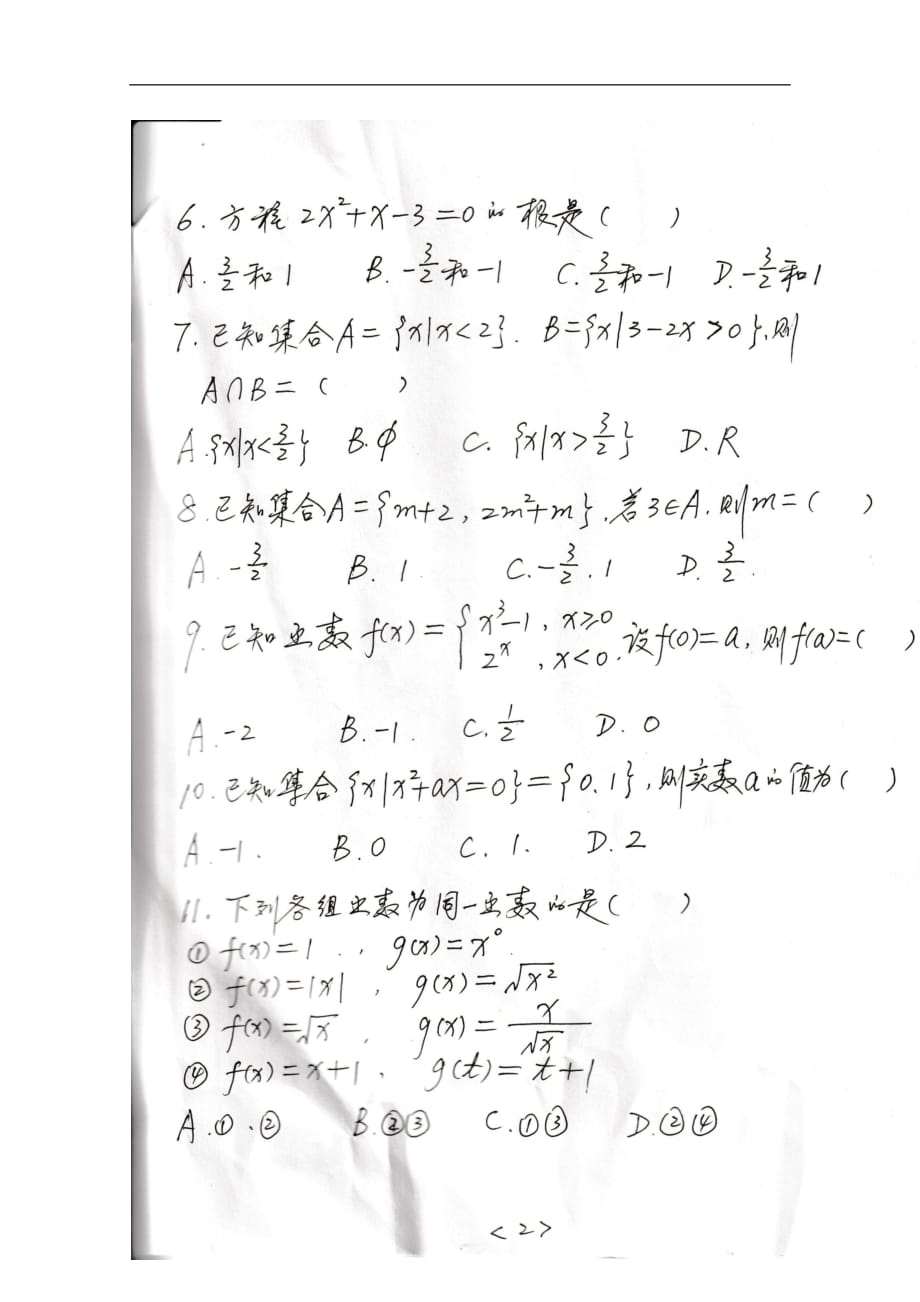 6. 方程 2x²+x-3=0 的根是(    )
A. 3/2和1    B. -3/2和-1    C. 3/2和-1    D. -3/2和1
7. 已知集合A={x|x<2}. B={x|3-2x>0},则
A∩B=(    )
A.{x|x<3/2}    B.ϕ    C. {x|x>3/2}    D.R
8.已知集合A={m+2, 2m²+m}.若3∈A.则m=(    )
A.-3/2    B. 1.    C.-3/2.1    D. 3/2.
9.已知函数f(x)={x³-1, x≥0
2ˣ, x<0.设f(0)=a,则f(a)=(    )
A.-2    B.-1.    C.1/2    D. 0
10.已知集合{x|x²+ax=0}={0.1},则实数a的值为(    )
A.-1.    B.0    C. 1.    D.2
11.下列各组函数为同一函数的是(    )
① f(x)=1 ., g(x)=x⁰.
② f(x)=|x| , g(x)=√x²
③ f(x)=√x , g(x)=x/√x
④ f(x)=x+1 , g(t)=t+1
A.①、②    B.②③    C.①③    D.②④
<2>